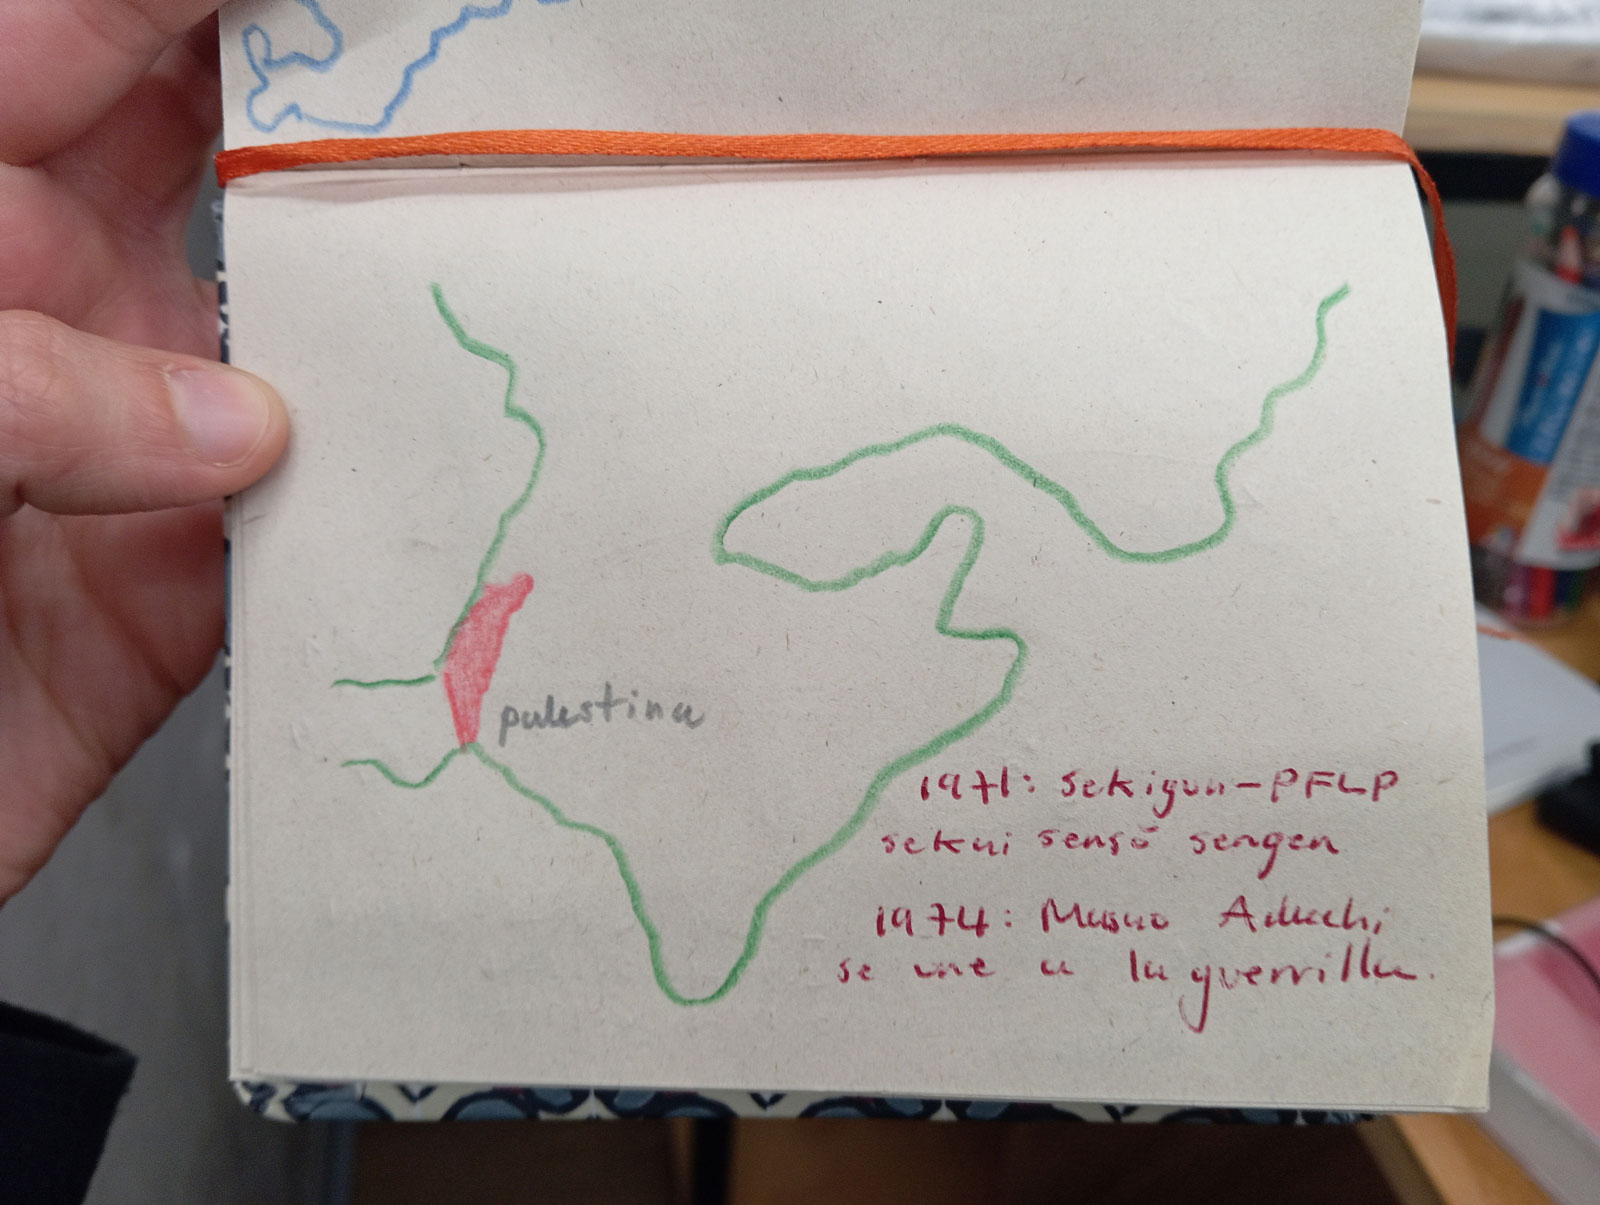 palestina
1971: Sekigun-PFLP
sekai sensō sengen
1974: Masao Adachi
se une a la guerrilla.